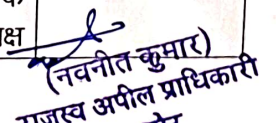 क्ष
(नवनीत कुमार)
राजस्व अपील प्राधिकारी